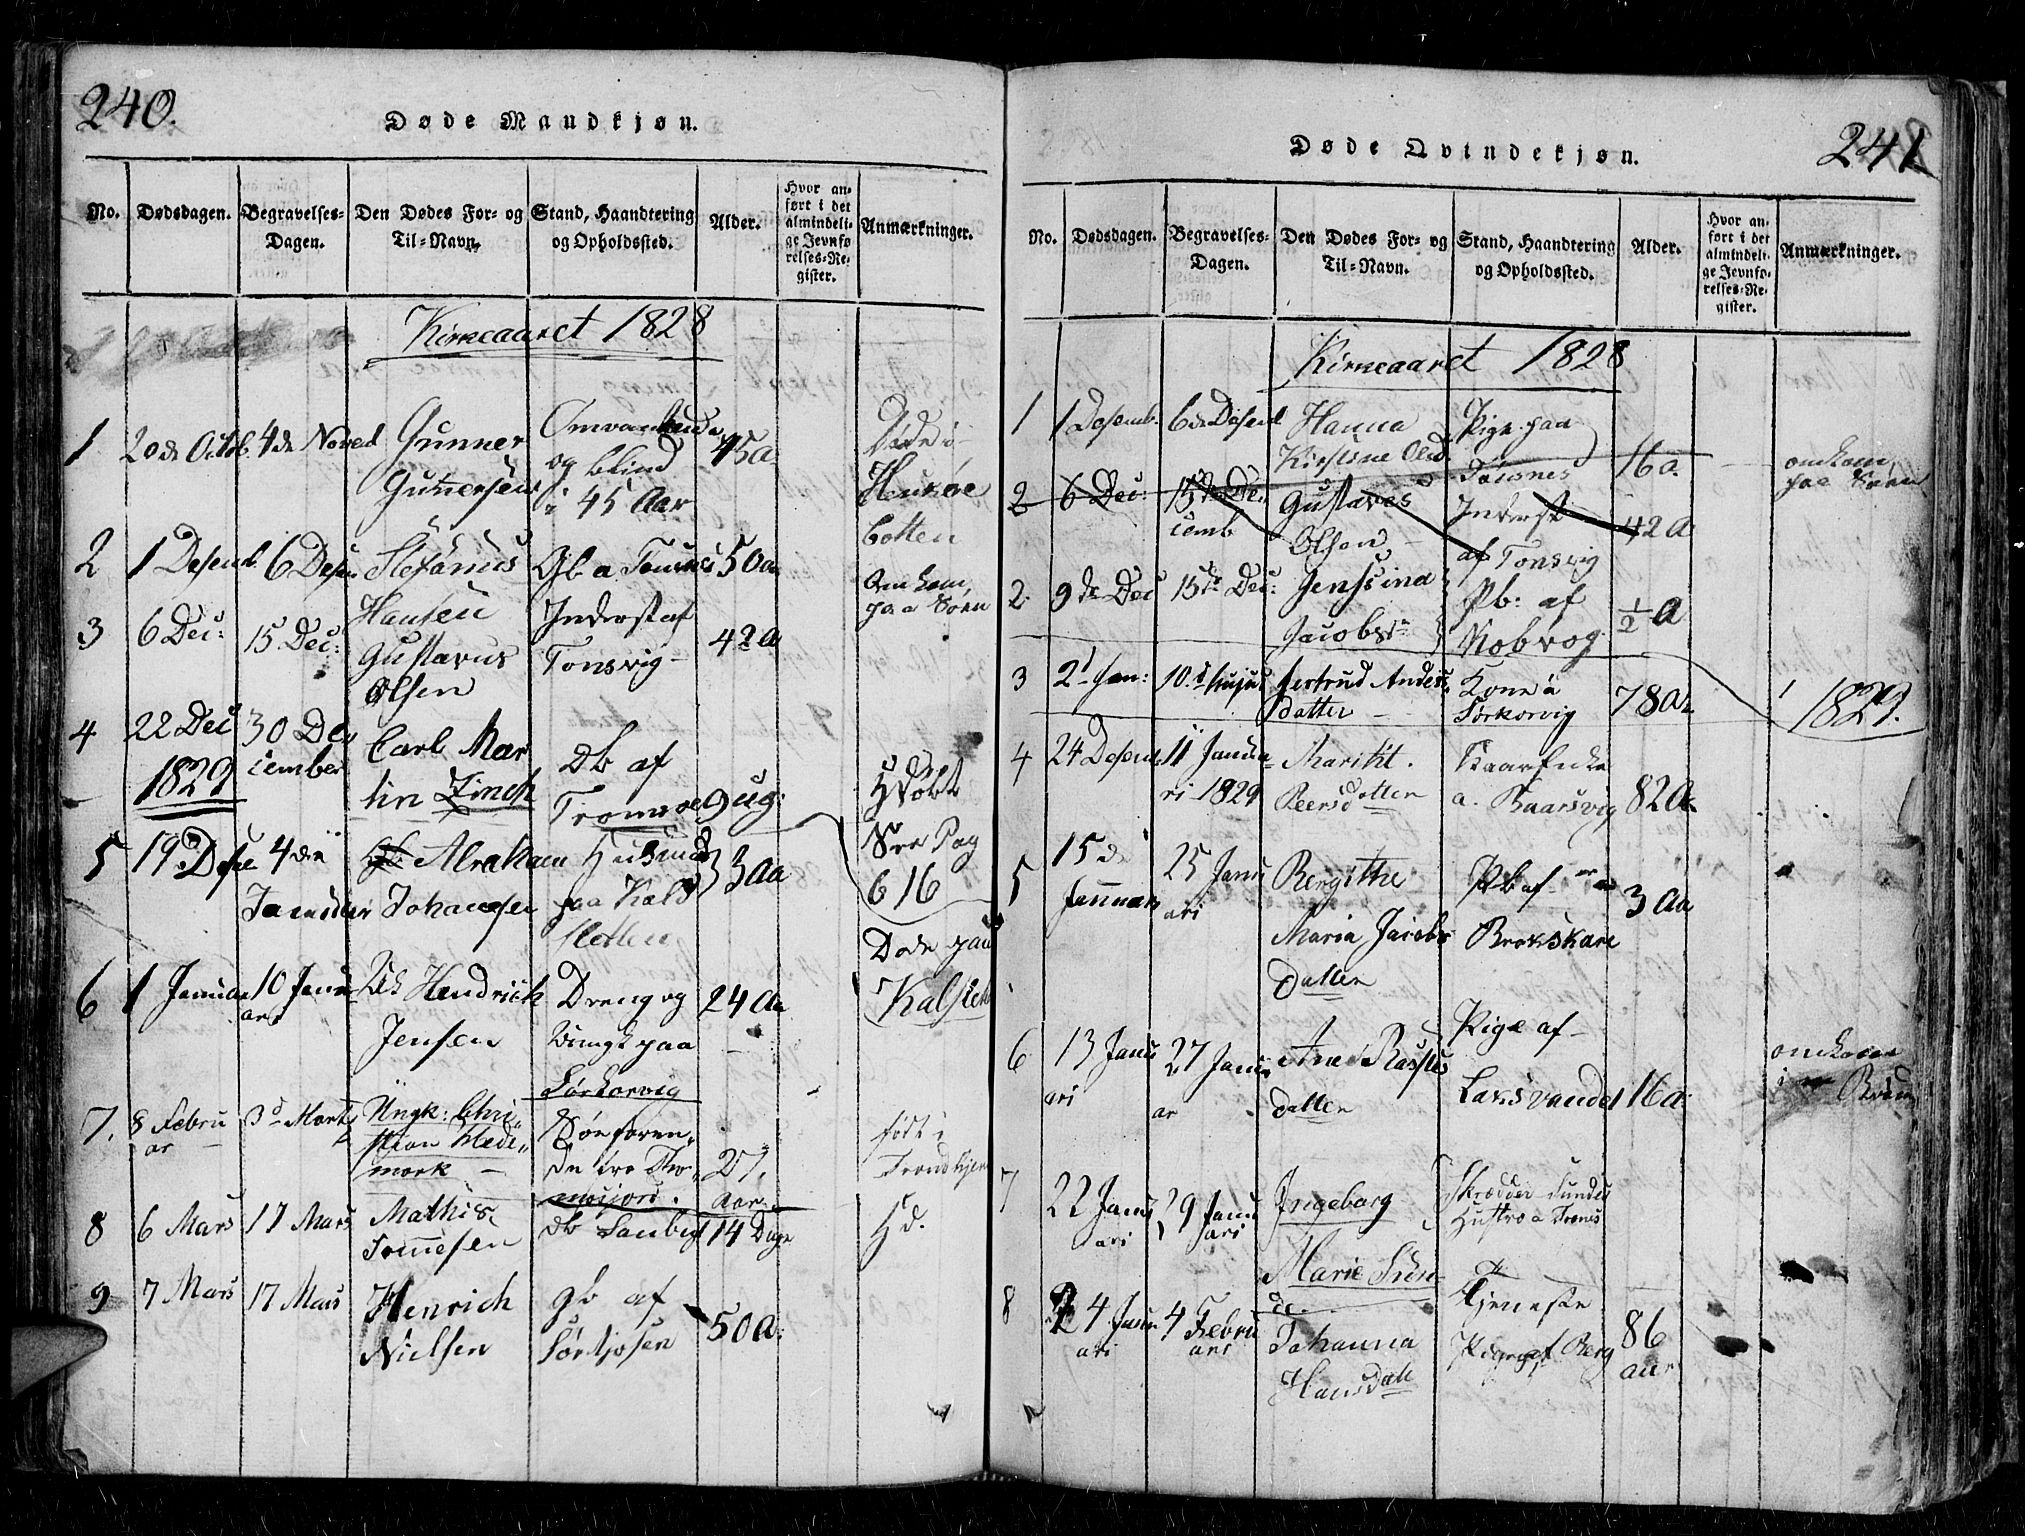 240.
Døde Mandkjøn.
No.
Dødsdagen.
Begravelses-
Dagen.
Den Dødes For- og
Til-Navn.
Stand, Haandtering
og Opholdssted.
Alder.
Hvor an-
ført i det
almindeli-
ge Jevnfø
relses-Re-
gister.
Anmærkninger.
Kirkeaaret 1828
1
20de Octob.
4de Noved
Gunner
Gunnersen
og blind
i 45 Aar
45 a
Døde i
botten
2
1 Desemb.
6 Desem
Stefanus
Hansen
Gb a
50 aa
Omkom
paa Søen
3
6 Dec:
15 Dec:
Gustavus
Olsen
Inderst af
Tonsvig
42 a
4
22 Dec
30 De
cember
Carl Mar
tin Zinck
Db af
Tromsøe
9 ug:
Hdøbt
See Pag
616
1829
5
19 Dese
4de
Januar
Abraham
Johannesen
Husmand
paa Kals
sletten
3 aa
Døde paa
Kalslet
6
1 Januar
10 Janu
ari
Hendrich
Jensen
Dreng og
paa
Sørkorvig
24 Aa
7.
8 Febru
ar
3d Marti
Ungk: Chri-
stian Hede-
mark
Søefaren-
de fra Thr
27
Aar
født i
Trondhjem
8
6 Mars
17 Mars
Mathis
Tommesen
db
14 Dage
Hd.
9
7 Mars
17 Mars
Henrich
Nielsen
gb af
Sørkjosen
50 a.
241
Døde Qvindekjøn.
No.
Dødsdagen.
Begravelses-
Dagen.
Den Dødes For- og
Til-Navn.
Stand, Haandtering
og Opholdssted.
Alder.
Hvor an-
ført i det
almindeli-
ge Jevnfø-
relses-Re-
gister.
Anmærkninger.
Kirkeaaret 1828
1
1 Desemb.
6de Desemb
Hanna
Kirstine Olsd.
Pige paa
16 a.
omkom
paa Søen
2
6 Dec:
15de De
cemb
Gustaves
Olsen
Inderst
af Tonsvig
42 a
2.
9de Dec
15de Dec:
Jenssina
Jacobs
Pb: af
Kobvog
1/2 a
3
2 Jan:
10d hujus
Gertrud Anders
datter
Kone a
Sørkorvig
78 a.
1829.
4
24 Desem
11 Janua
ri 1829
Marikt.
Peersdatter
a. Kaarsvig
82 a
5
15de
Januar
25 Janu
ari
Bergithe
Maria Jacobs
datter
Pb af
Brekskare
3 aa
6
13 Janu
ari
27 Janu
ar
Ane Rasmus
datter
Pige af
Laksvandet
16 a.
omkom
i
7
22 Janu
ari
29 Janu
ari
Ingeborg
Marie Sun
de
Skrædder Sundes
Hustro a Trones
8
24 Janu
ari
4 Febru
ari
Johanna
Hansdatt
Tjeneste
Pige af Berg
86
aar